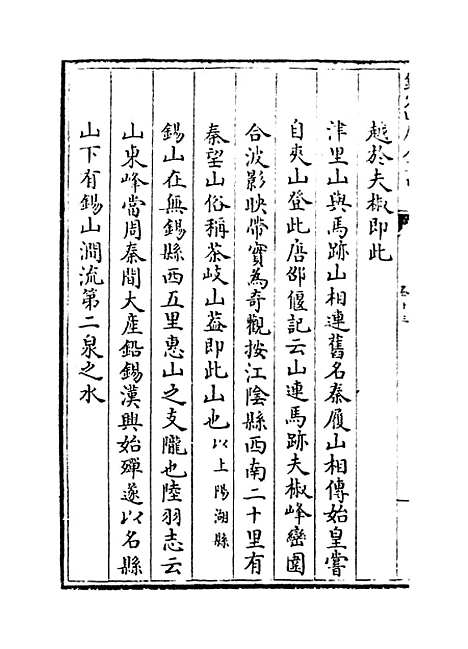 越於夫椒即此
津里山與馬跡山相連舊名秦履山相傳始皇嘗
自夾山登此唐邵偃記云山連馬跡夫椒峰巒圍
合波影映帶實為奇觀按江陰縣西南二十里有
秦望山俗稱茶岐山葢即此山也以上陽湖縣
錫山在無錫縣西五里惠山之支隴也陸羽志云
山東峰當周秦間大產鉛錫漢興始殫遂以名縣
山下有錫山澗流第二泉之水